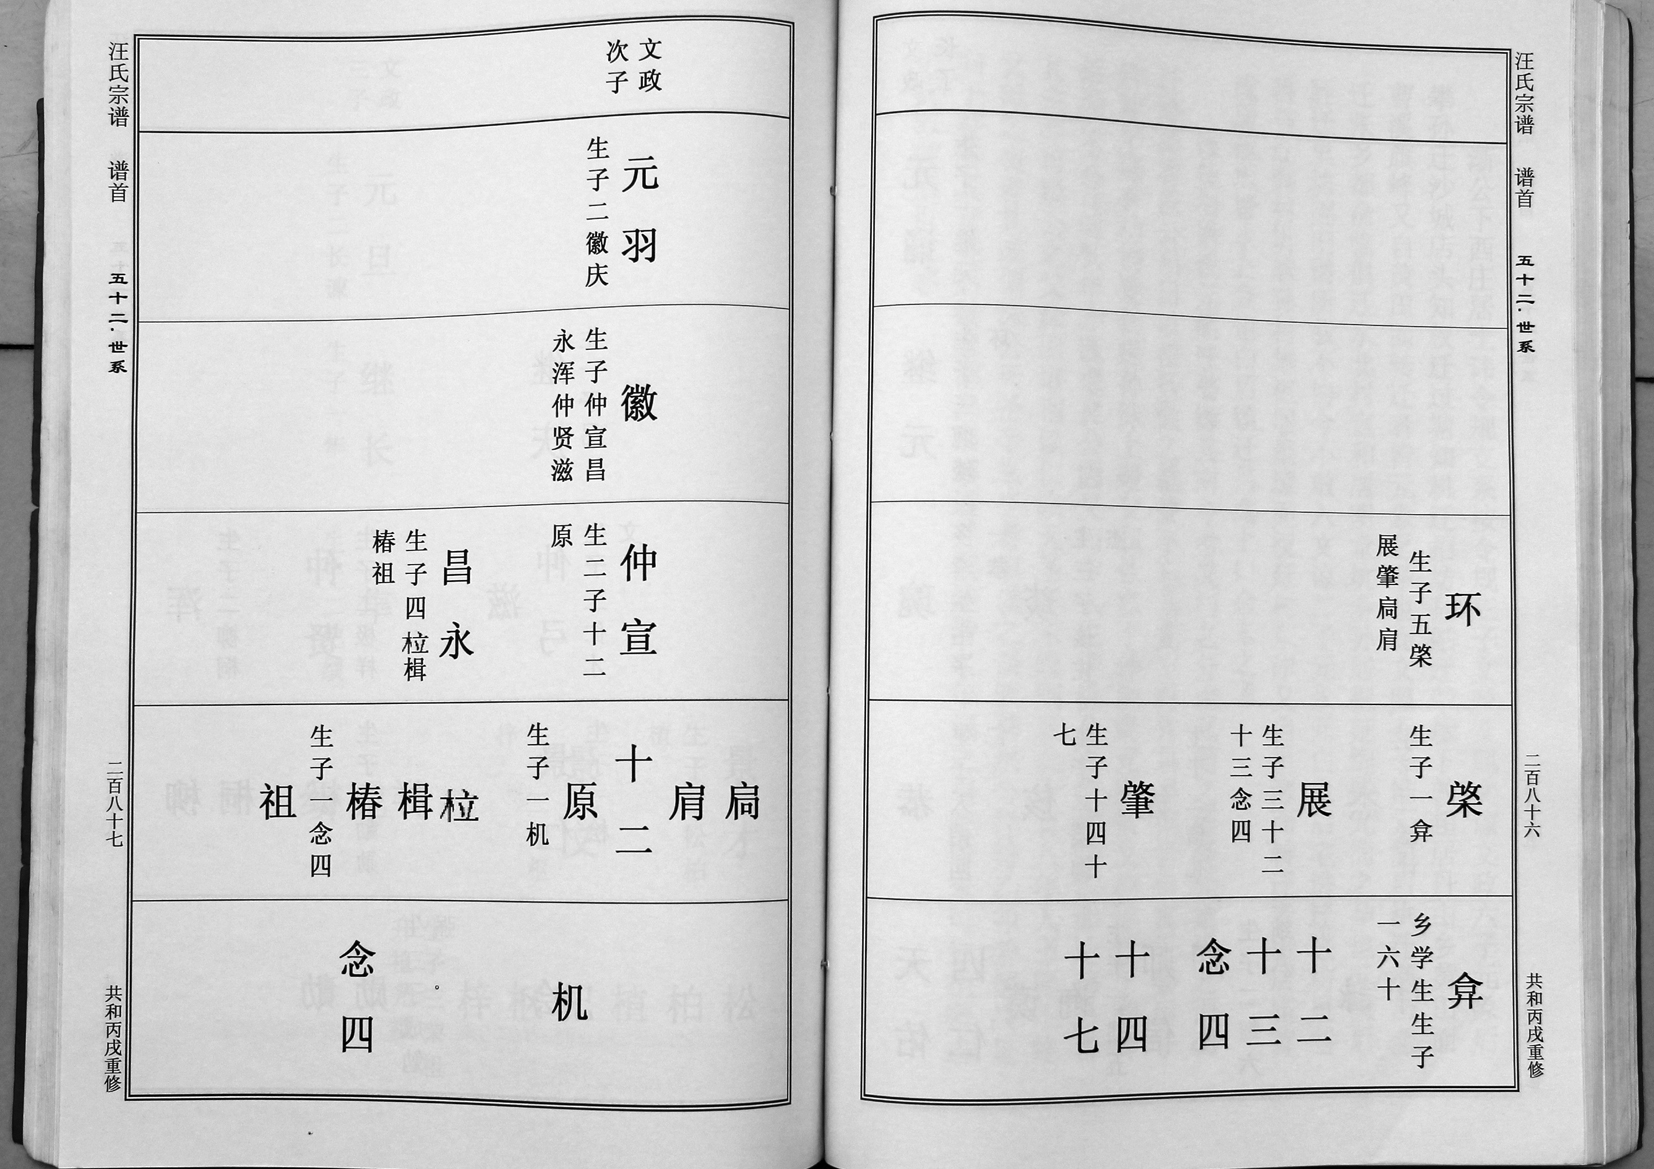 汪氏宗谱
谱首
五十二·世系
二百八十六
共和丙戌重修
环
生子五棨
展肇扃肩
棨
生子一弇
展
生子三十二
十三念四
肇
生子十四十
七
弇
乡学生生子
一六十
十二
十三
念四
十四
十七
文政
次子
元羽
生子二徽庆
徽
生子仲宣昌
永浑仲贤滋
仲宣
生二子十二
原
昌永
生子四柆楫
椿祖
扃
肩
十二
原
生子一机
柆
楫
椿
生子一念四
祖
机
念四
汪氏宗谱
谱首
五十二·世系
二百八十七
共和丙戌重修